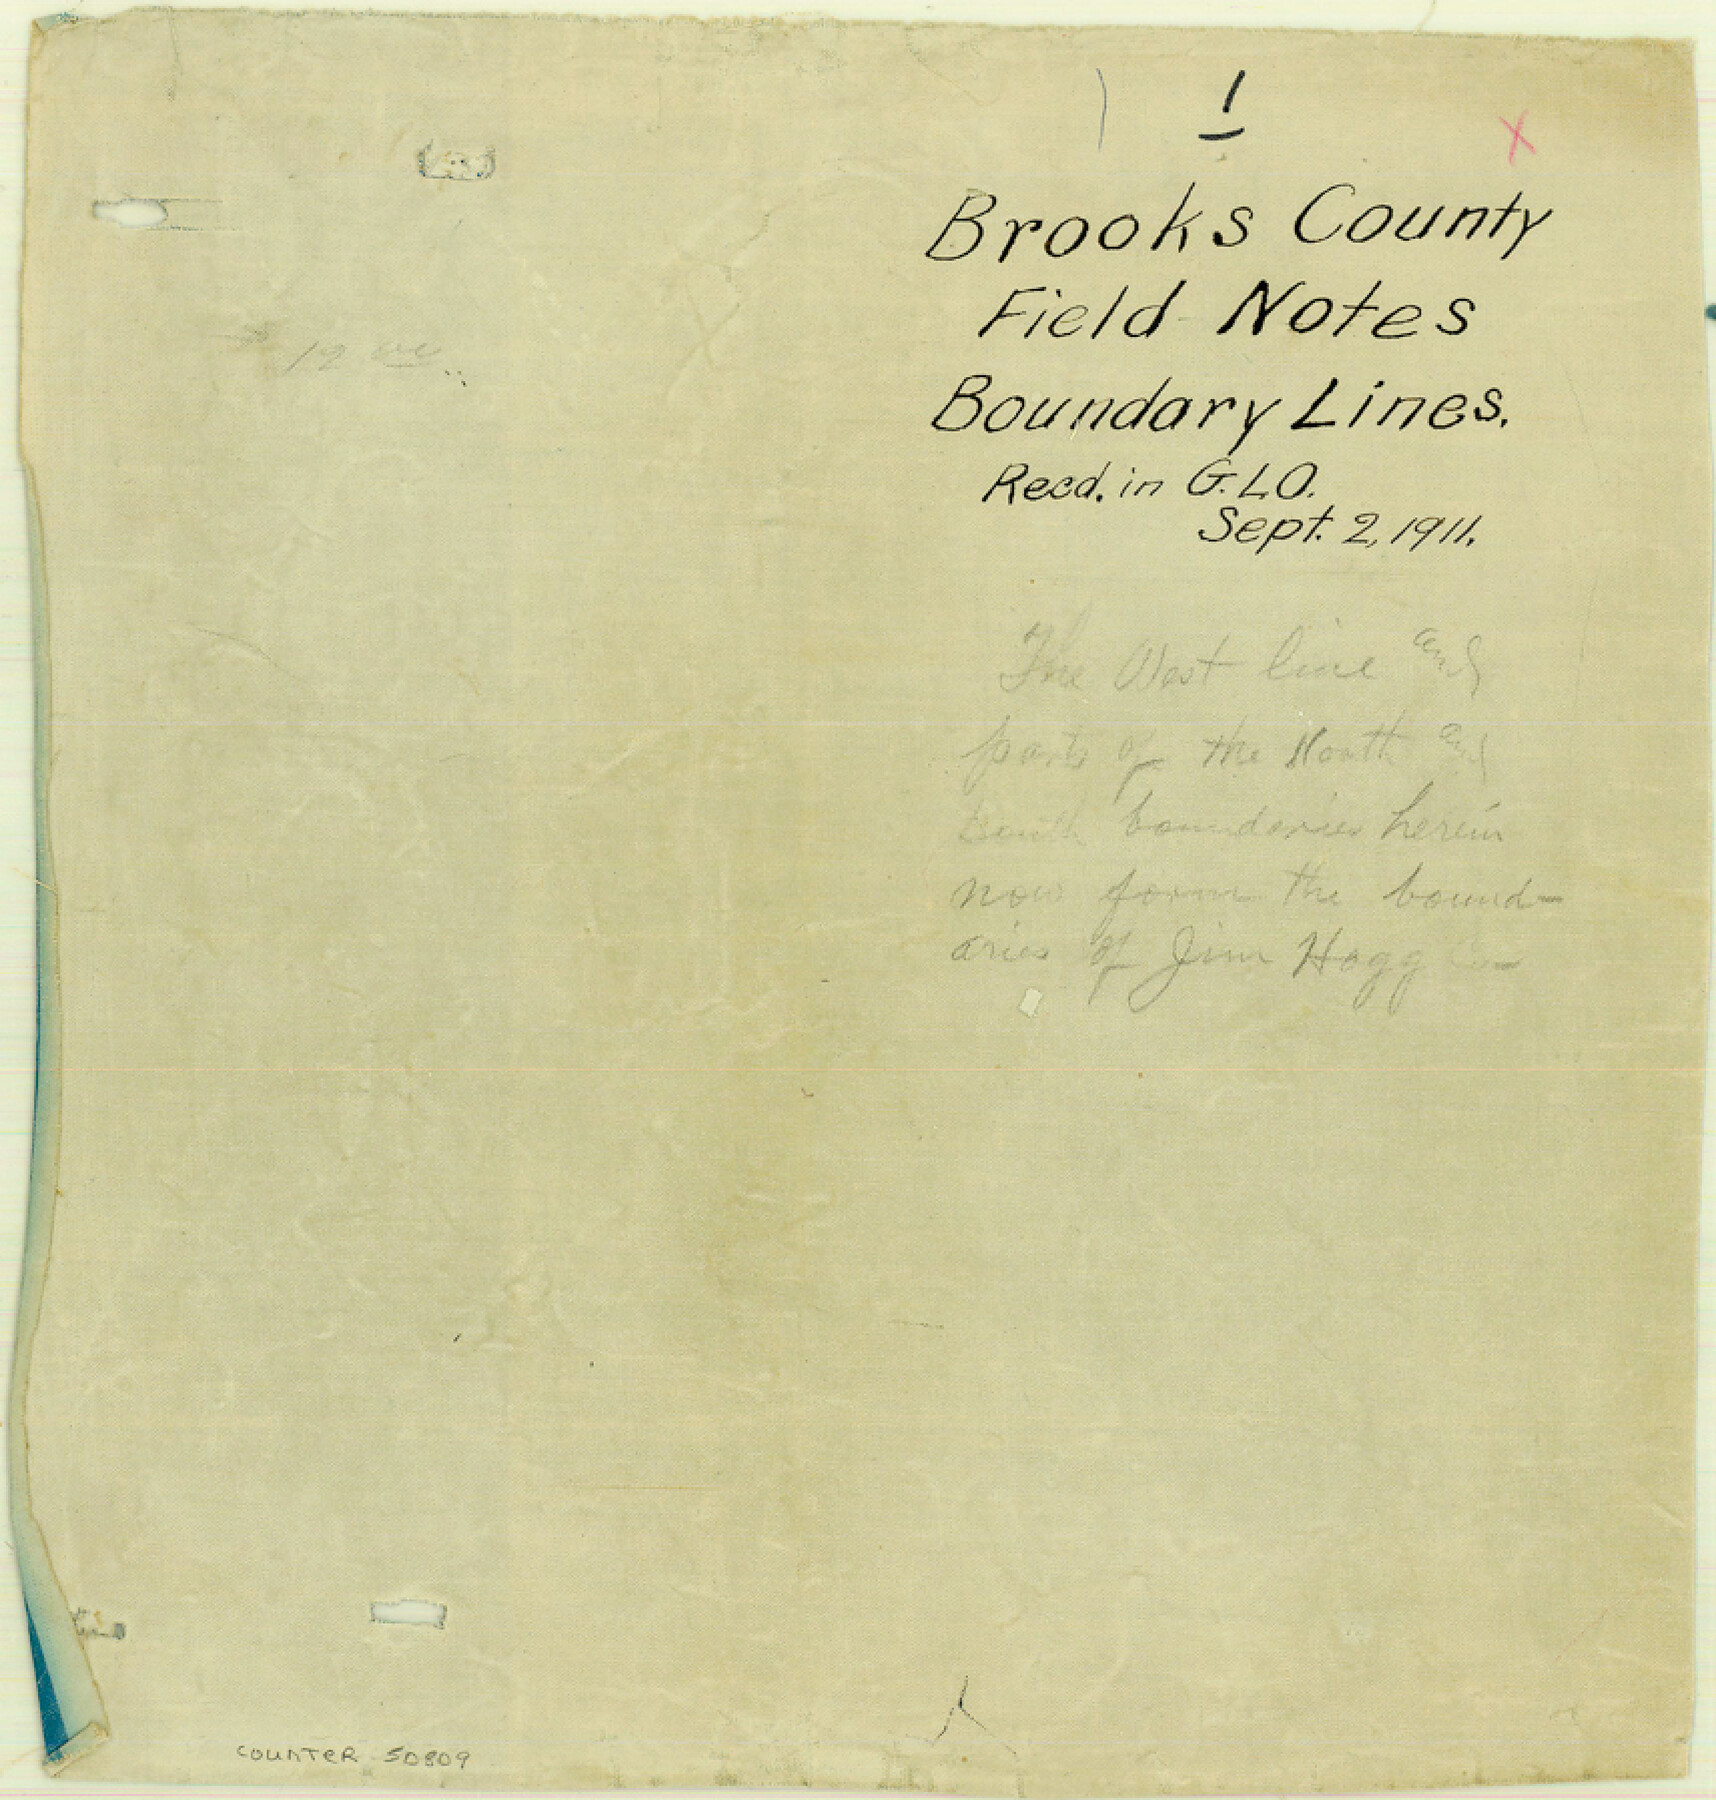 1
X
Brooks County
Field Notes
Boundary Lines.
Recd. in G.L.O.
Sept. 2, 1911.
12 00
The West line and
parts of the North and
South boundaries herein
now form the bound-
aries of Jim Hogg Co-
COUNTER 50809